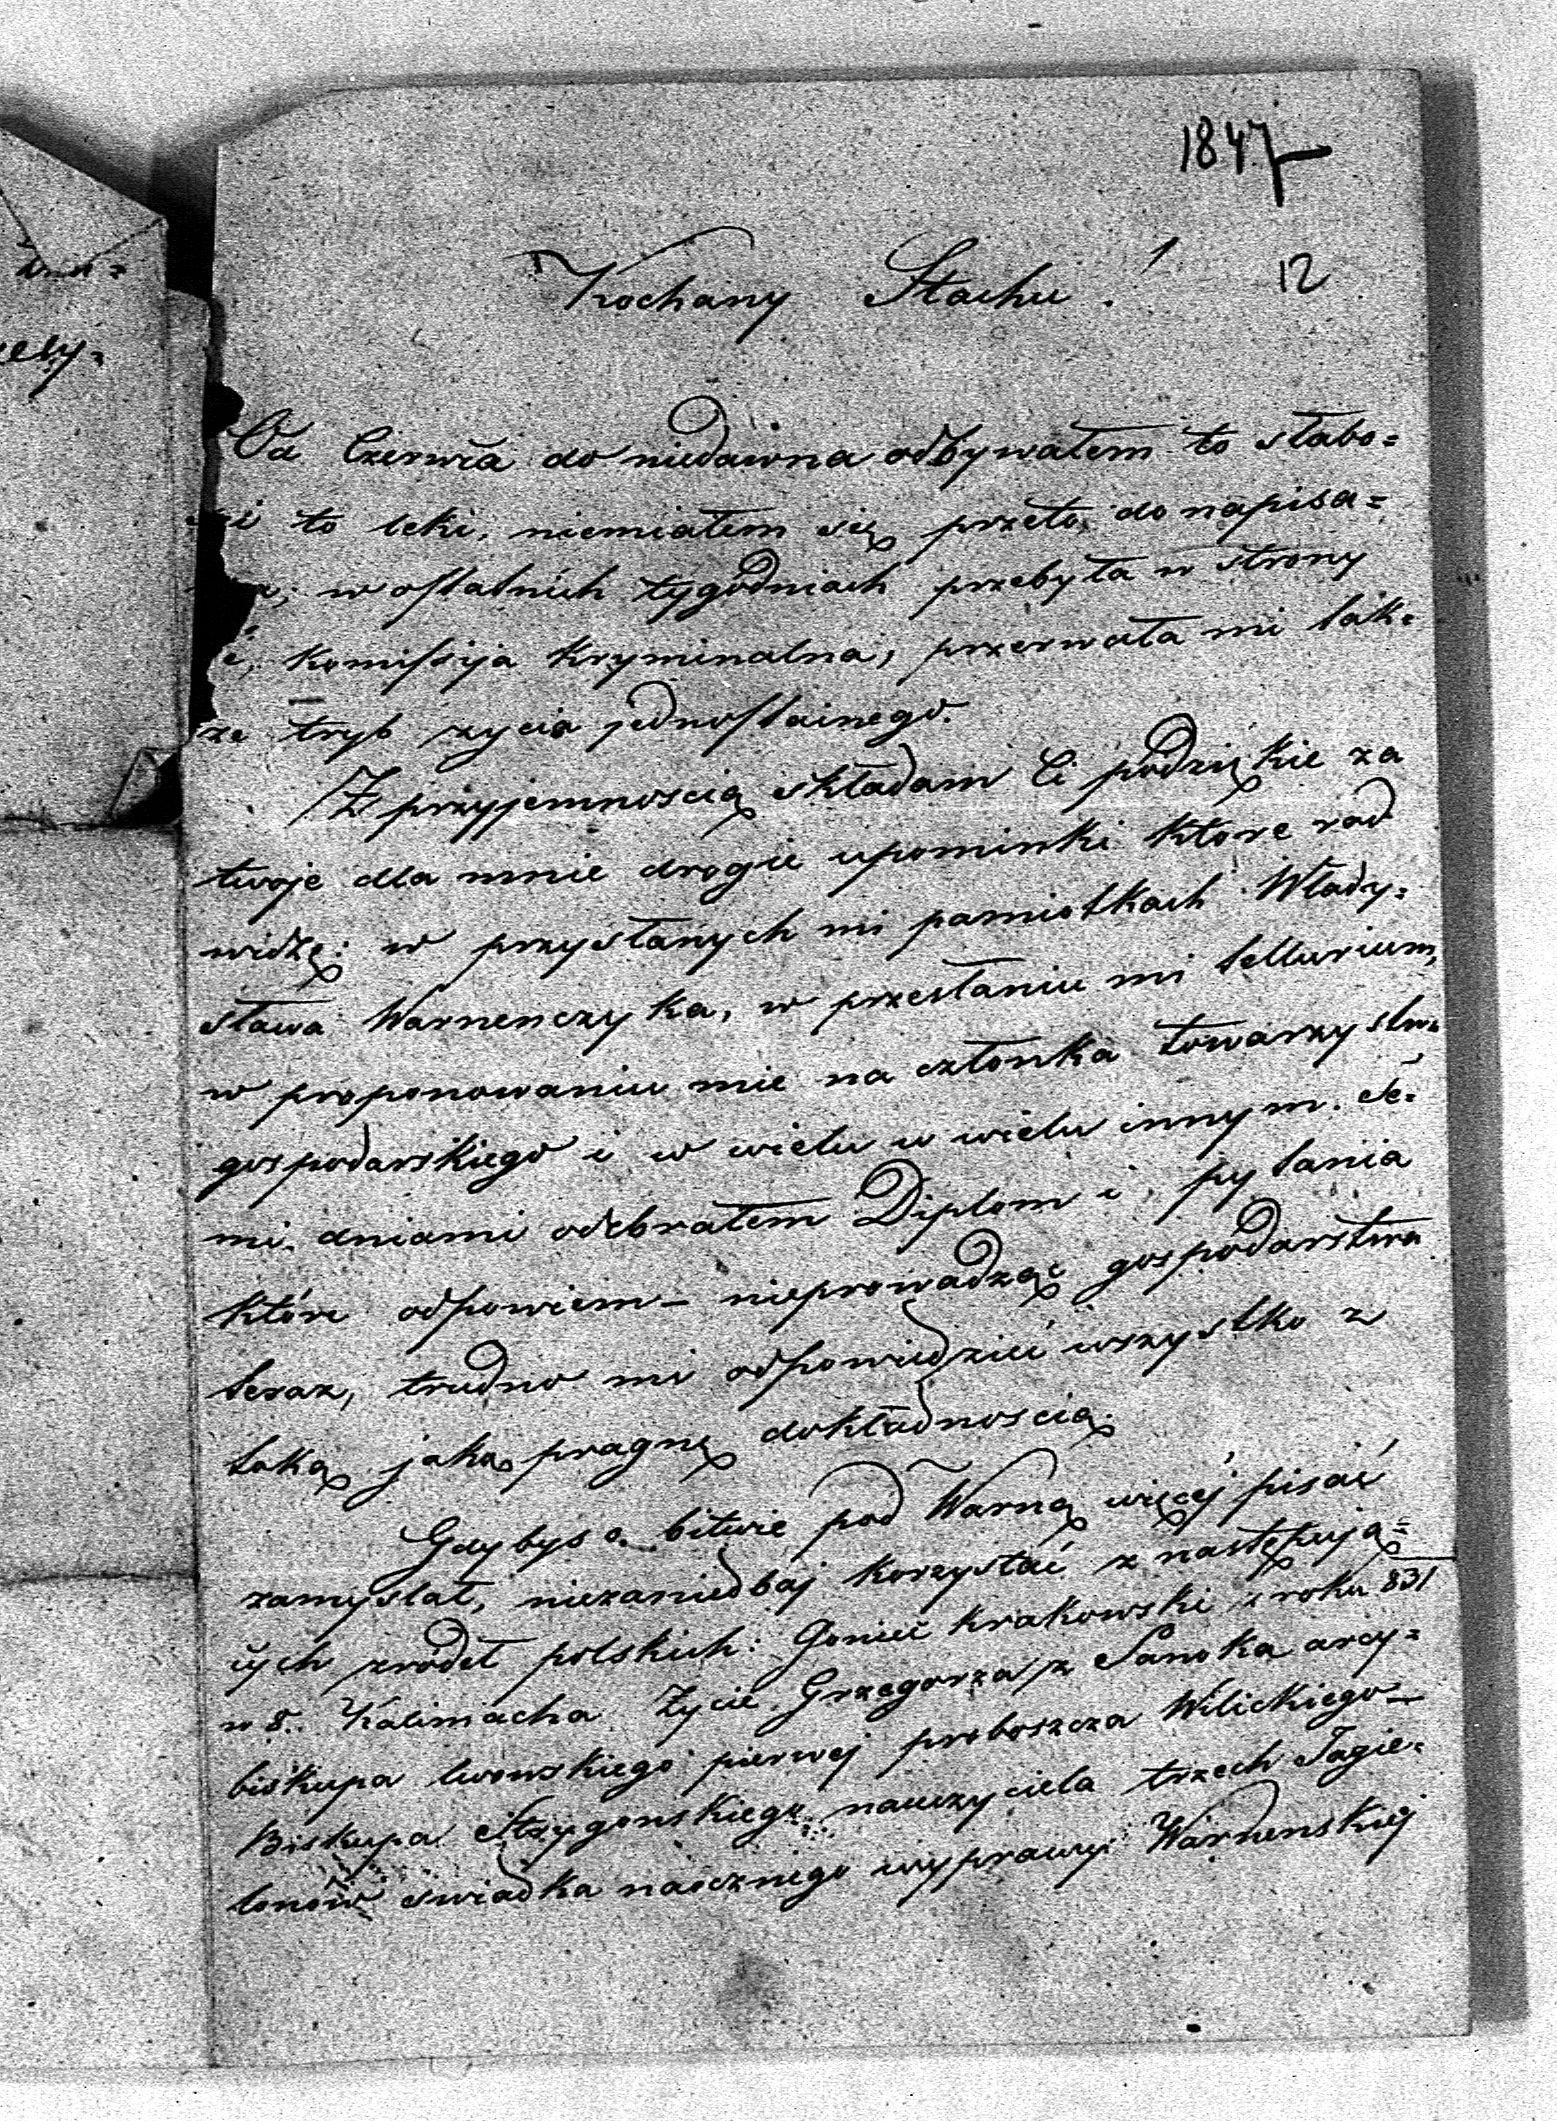 1847
12
Kochany Stachu!
Od Czerwca do niedawna odbywałem to słabo=
ści to leki, niemiałem się przeto do napisa=
a; w ostatnich tygodniach przebyła w strony
é, Komissija Kryminalna, przerwała mi tak=
że tryb życia jednostainego.
Z przyjemnoscią składam Ci podziękie za
twoje dla mnie drogie upominki które rad
widzę: w przysłanych mi pamiotkach Włady=
sława Warnenczyka, w przesłaniu mi tellurium,
w proponowaniu mie na członka towarzystw.
gospodarskiego i w wielu w wielu innym. Te=
mi dniami odebrałem Diplom i pytania
które odpowiem – nieprowadząc gospodarstwa
teraz, trudno mi odpowiedzieć wszystko z
taką jaką pragnę dokładnoscią.
Gdybys o bitwie pod Warną więcéj pisać
zamyslał, niezaniedbaj korzystać z następują=
cych zródeł polskich: Goniec Krakowski z roku 831
w 8. Kalimacha Życie Grzegorza z Sanoka arcy=
biskupa lwowskiego pierwej proboszcza Wilickiego –
Biskupa Strygonskiego nauczyciela trzech Jagie=
lonów swiadka naocznego wyprawy Warnenskiej